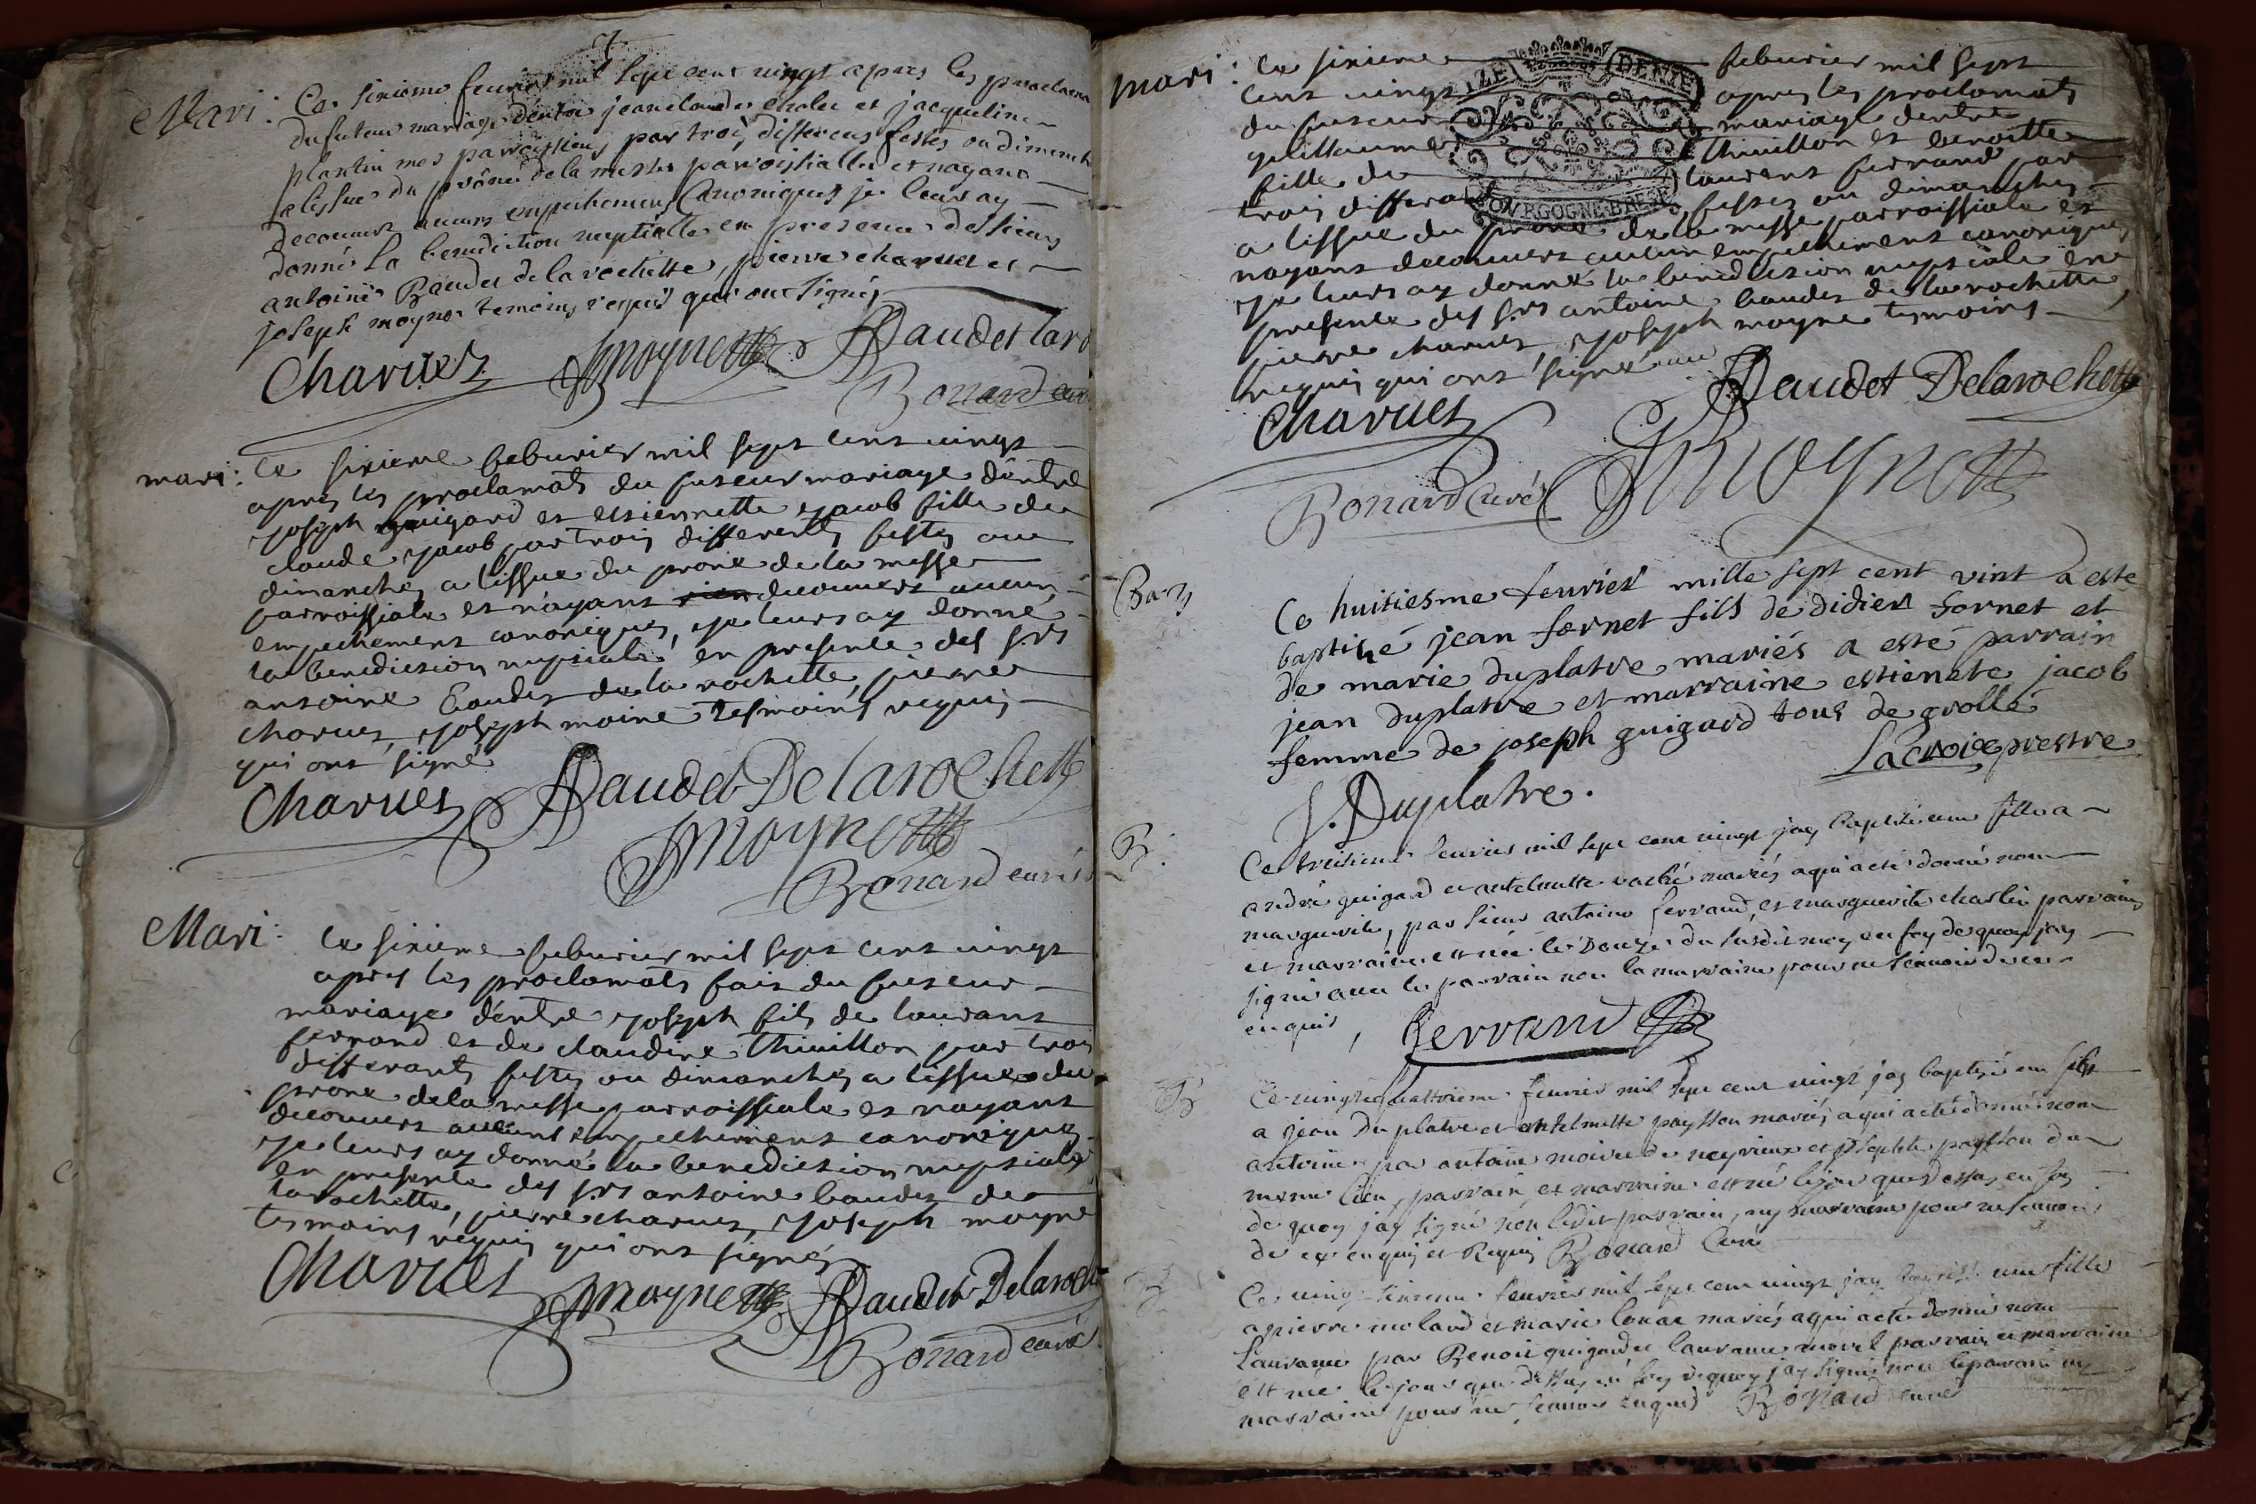 7
Mari: Ce sixieme feurier mil sept cent vingt apres les proclama
du futeur mariage d'entre jean claude et jacqueline
plantin mes paroissiens par trois differens festes ou dimench
a l'issue du prône de la messe paroissialle et nayant
decouvert aucuns empechemens canoniques je leurs ay
donné la benediction nuptialle en presence des sieurs
antoine Baudet de la rochette, pierre charuet et
joseph moyne temoins requis qui ont signés
Charuet JMoyne Baudet Laro
Bonard curé
mari: Ce sixieme feburier mil sept cent vingt
apres les proclamats du futeur mariage d'entre
joseph guigard et estiennette jacob fille de
claude jacob par trois differents festes ou
dimanches a lissue du prone de la messe
parroissiale et n'ayant rien decouvert aucun
empechement canoniques, je leurs ay donné
la benediction nupsiale en presence des srs
antoine baudet de la rochette, pierre
charuet, joseph moine tesmoins requis
qui ont signé
Charuet Baudet Delarochette
JMoyne
Bonard curé
Mari: Ce sixieme feburier mil sept cent vingt
apres les proclamats fais du futeur
mariage d'entre joseph fils de laurans
ferrand et de claudine thiuillon par trois
differants festes ou dimanches a lissue du
prone de la messe parroissiale et nayant
decouvert aucuns empechement canonique
je leurs ay donné la benediction nupsiale
en presence des srs antoine baudet de
la rochette, pierre charuet, joseph moyne
tesmoins requis qui ont signés
Charuet JMoyne Baudet Delaroche
Bonard curé
mari: Ce sixieme feburier mil sept
cent vingt apres les proclamats
du futeur mariage dentre
guillaume thiuillon et benoitte
fille de laurent ferrand par
trois differants festes ou dimanches
a lissue du prone de la messe parroissiale et
nayant decouvert aucun empechement canonique
je leurs ay donné la benediction nupsiale en
presence des srs antoine baudet de la rochette,
pierre charuet, joseph moyne tesmoins
requis qui ont signé
IZE DENIE
BOVRGOGNE BRESSE
Charuet Baudet Delarochette
Bonard Curé JMoyne
Ba Ce huitiesme feurier mille sept cent vint a este
baptisé jean fornet fils de didier fornet et
de marie duplatre mariés a esté parrain
jean duplatre et marraine estienete jacob
femme de joseph guigard tous de grolle
J. Duplatre. Lacroix prestre
B. Ce treisieme feurier mil sept cent vingt jay baptizé une fille a
andré guigard et antelmette mariés a qui a eté donné nom
marguerite, par sieur antoine ferrand, et marguerite charlin parrain
et marraine et née le Douze du susdit moy en foy de quoy jay
signé avec le parrain non la marraine pour ne sçauoir de ce
enquis, Ferrand
B Ce vingtequattrieme feurier mil sept cent vingt jay baptizé un fils
a jean Duplatre et antelmette paysson mariés, a qui a eté donné nom
antoine par antoine moine de neyrieux et paysson du
meme lieu, parrain et marraine et né le jour que dessus, en foy
de quoy jay signé non ledit parrain, ny marraine pour ne sçauoir
de ce enquis et Requis Bonard Curé
Ce vingt feurier mil sept cent vingt jay une fille
a pierre molard et marie mariés a qui a eté donné nom
Laurance par Benoit guigard et laurance morel parrain et marraine
et née le jour que dessus en foy de quoy jay signé non le parrain ny
marraine pour ne sçauoir enquis Bonard curé